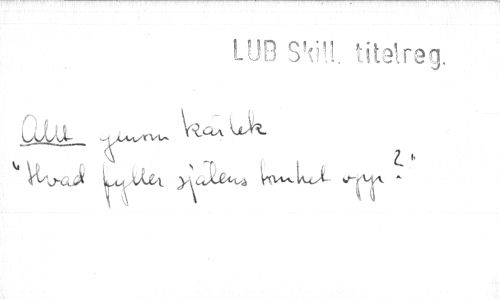 LUB Skill. titelreg.
Allt genom kärlek
"Hvad fyller själens tomhet opp?"